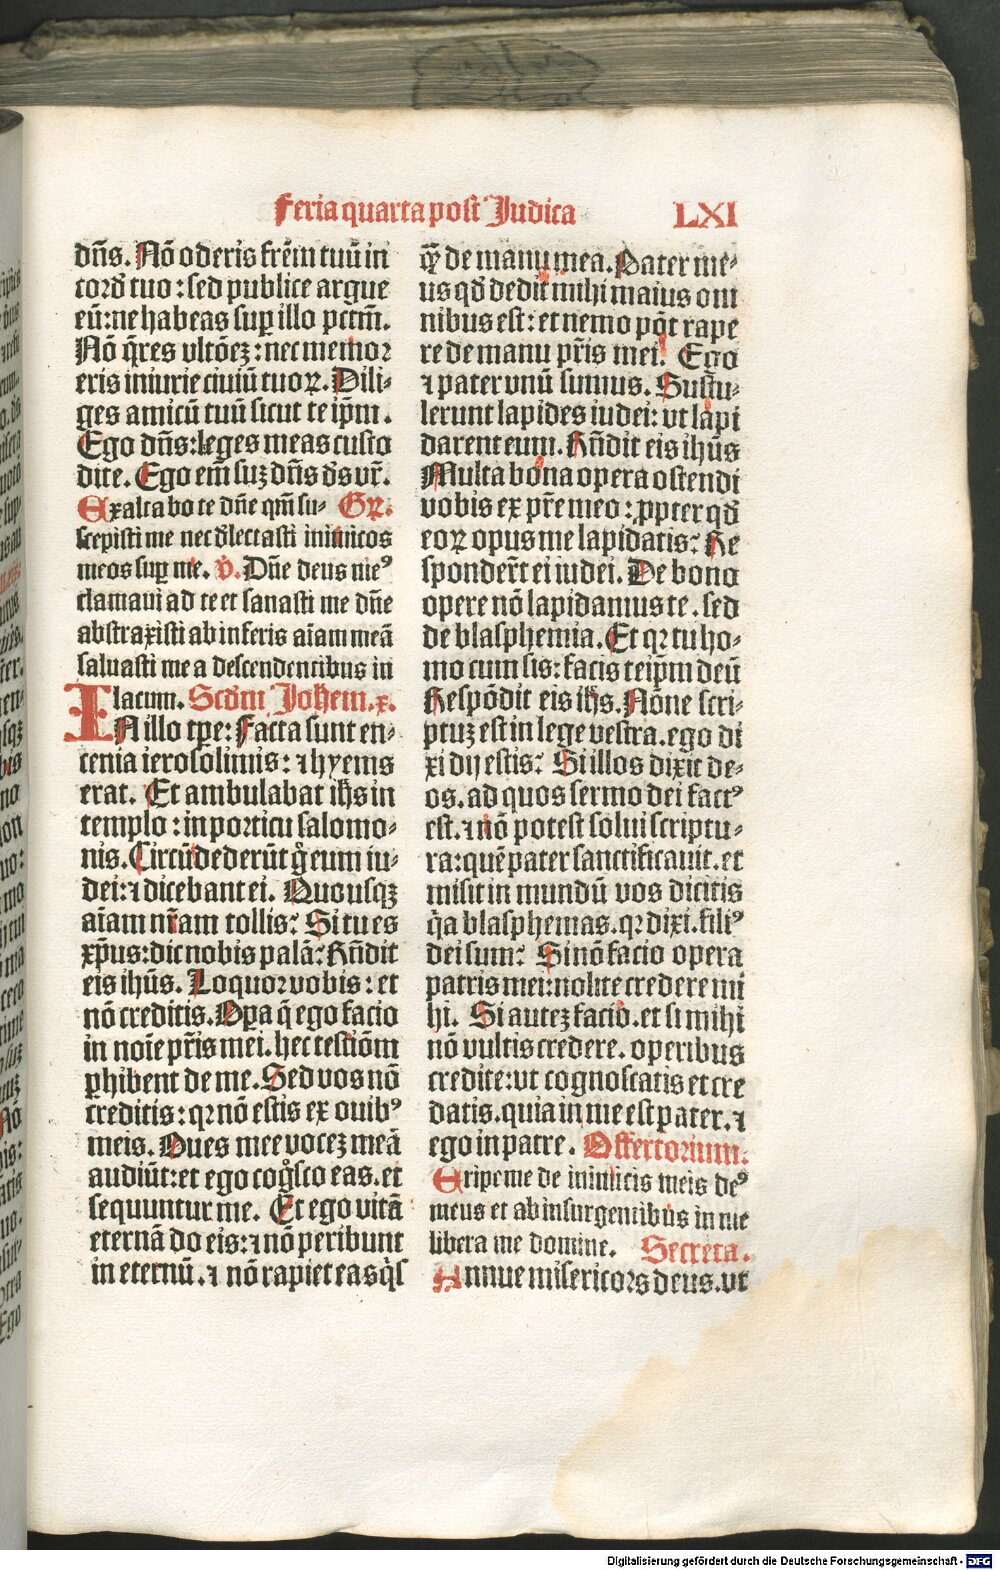 Feria quarta post Judica LXI
dñs. Nõ oderis frēm tuū in
cord tuo : sed publice argue
eū: ne habeas sup illo pctm̄.
Nõ q̄res vltōeꝫ : nec memor
eris iniurie ciuiū tuoꝝ. Dili⸗
ges amicū tuū sicut te ipm̄.
Ego dñs: leges meas custo
dite. Ego em̄ suꝫ dñs ds vr̄.
Exaltabo te dñe qm̄ su⸗ Gꝝ.
scepisti me nec dlectasti inimicos
meos sup me. v̄. Dñe deus meꝰ
clamaui ad te et sanasti me dñe
abstraxisti ab inferis aīam meā
saluasti me a descendentibus in
lacum. Scdm Johem. x.
IN illo tp̄e: Facta sunt en⸗
cenia ierosolimis: ⁊ hyems
erat. Et ambulabat ih̄s in
templo : in porticu salomo⸗
nis. Circūdederūt g̊ eum iu⸗
dei: ⁊ dicebant ei. Quousqꝫ
aīam nr̄am tollis? Si tu es
xp̄us: dic nobis palā? Rn̄dit
eis ihūs. Loquor vobis : et
nō creditis. Opa q̄ ego facio
in noīe pr̄is mei. hec testiōm
ꝑhibent de me. Sed vos nō
creditis : qꝛ nō estis ex ouibꝰ
meis. Oues mee voceꝫ meā
audiūt: et ego cog̊sco eas. et
sequuntur me. Et ego vitā
eternā do eis: ⁊ nō peribunt
in eternū. ⁊ nō rapiet eas q̇s
q̄ de manu mea. Pater me⸗
us qd dedit mihi maius om
nibus est: et nemo pōt rape
re de manu pr̄is mei. Ego
⁊ pater vnū sumus. Sustu⸗
lerunt lapides iudei: vt lapi
darent eum. Rn̄dit eis ihūs
Multa bona opera ostendi
vobis ex pr̄e meo : ꝓpter qd
eoꝝ opus me lapidatis? Re
sponder̄t ei iudei. De bono
opere nō lapidamus te. sed
de blasphemia. Et qꝛ tu ho⸗
mo cum sis: facis teipm̄ deū
Respōdit eis ih̄s. Nōne scri⸗
ptuꝫ est in lege vestra. ego di
xi dij estis? Si illos dixit de⸗
os. ad quos sermo dei factꝰ
est. ⁊ nō potest solui scriptu⸗
ra: quē pater sanctificauit. et
misit in mundū vos dicitis
q̇a blasphemas. qꝛ dixi. filiꝰ
dei sum? Si nō facio opera
patris mei: nolite credere mi
hi. Si auteꝫ facio. et si mihi
nō vultis credere. operibus
credite: vt cognoscatis et cre
datis. quia in me est pater. ⁊
ego in patre. Offertorium.
Eripe me de inimicis meis deꝰ
meus et ab insurgentibus in me
libera me domine. Secreta.
Annue misericors deus. vt
Digitalisierung gefördert durch die Deutsche Forschungsgemeinschaft - DFG